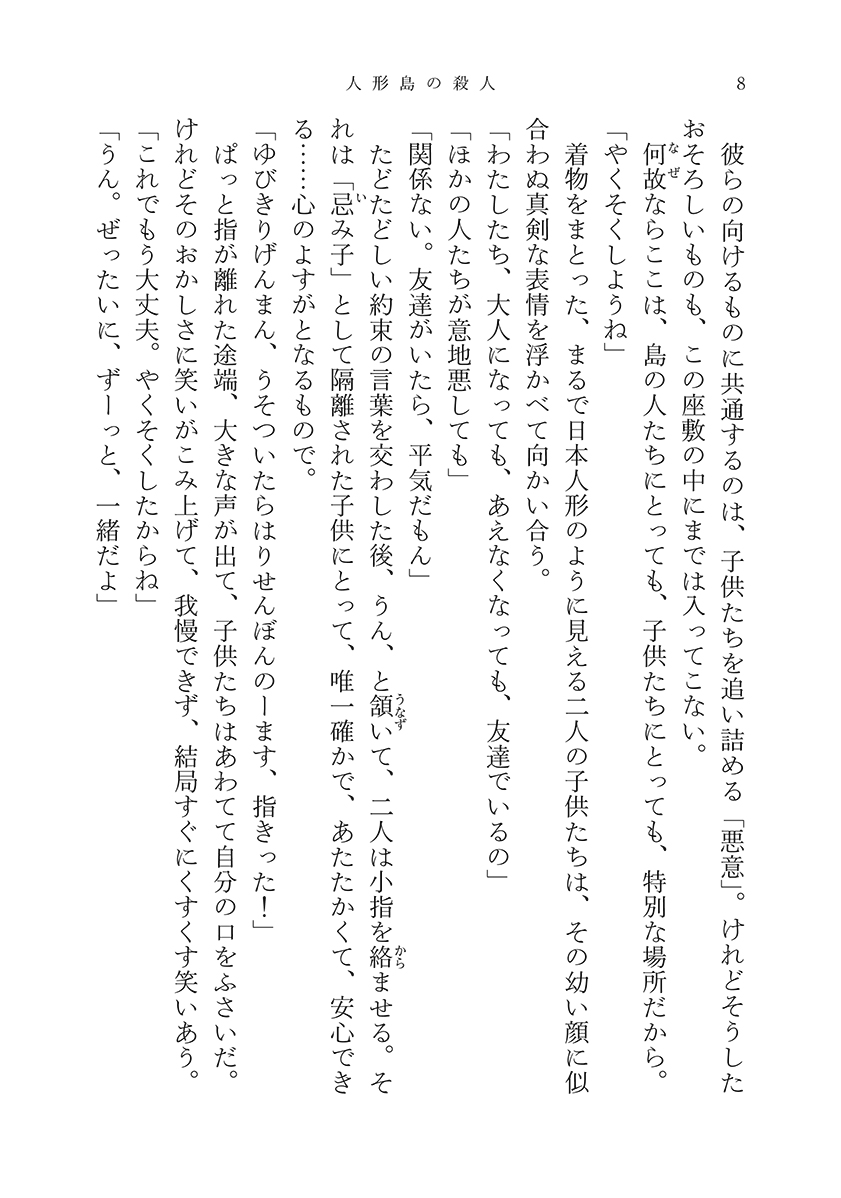 人形島の殺人
8
彼らの向けるものに共通するのは、子供たちを追い詰める「悪意」。けれどそうした
おそろしいものも、この座敷の中にまでは入ってこない。
何故ならここは、島の人たちにとっても、子供たちにとっても、特別な場所だから。
なぜ
「やくそくしようね」
着物をまとった、まるで日本人形のように見える二人の子供たちは、その幼い顔に似
合わぬ真剣な表情を浮かべて向かい合う。
「わたしたち、大人になっても、あえなくなっても、友達でいるの」
「ほかの人たちが意地悪しても」
「関係ない。友達がいたら、平気だもん」
たどたどしい約束の言葉を交わした後、うん、と頷いて、二人は小指を絡ませる。そ
うなず
から
れは「忌み子」として隔離された子供にとって、唯一確かで、あたたかくて、安心でき
い
る……心のよすがとなるもので。
「ゆびきりげんまん、うそついたらはりせんぼんのーます、指きった！」
ぱっと指が離れた途端、大きな声が出て、子供たちはあわてて自分の口をふさいだ。
けれどそのおかしさに笑いがこみ上げて、我慢できず、結局すぐにくすくす笑いあう。
「これでもう大丈夫。やくそくしたからね」
「うん。ぜったいに、ずーっと、一緒だよ」